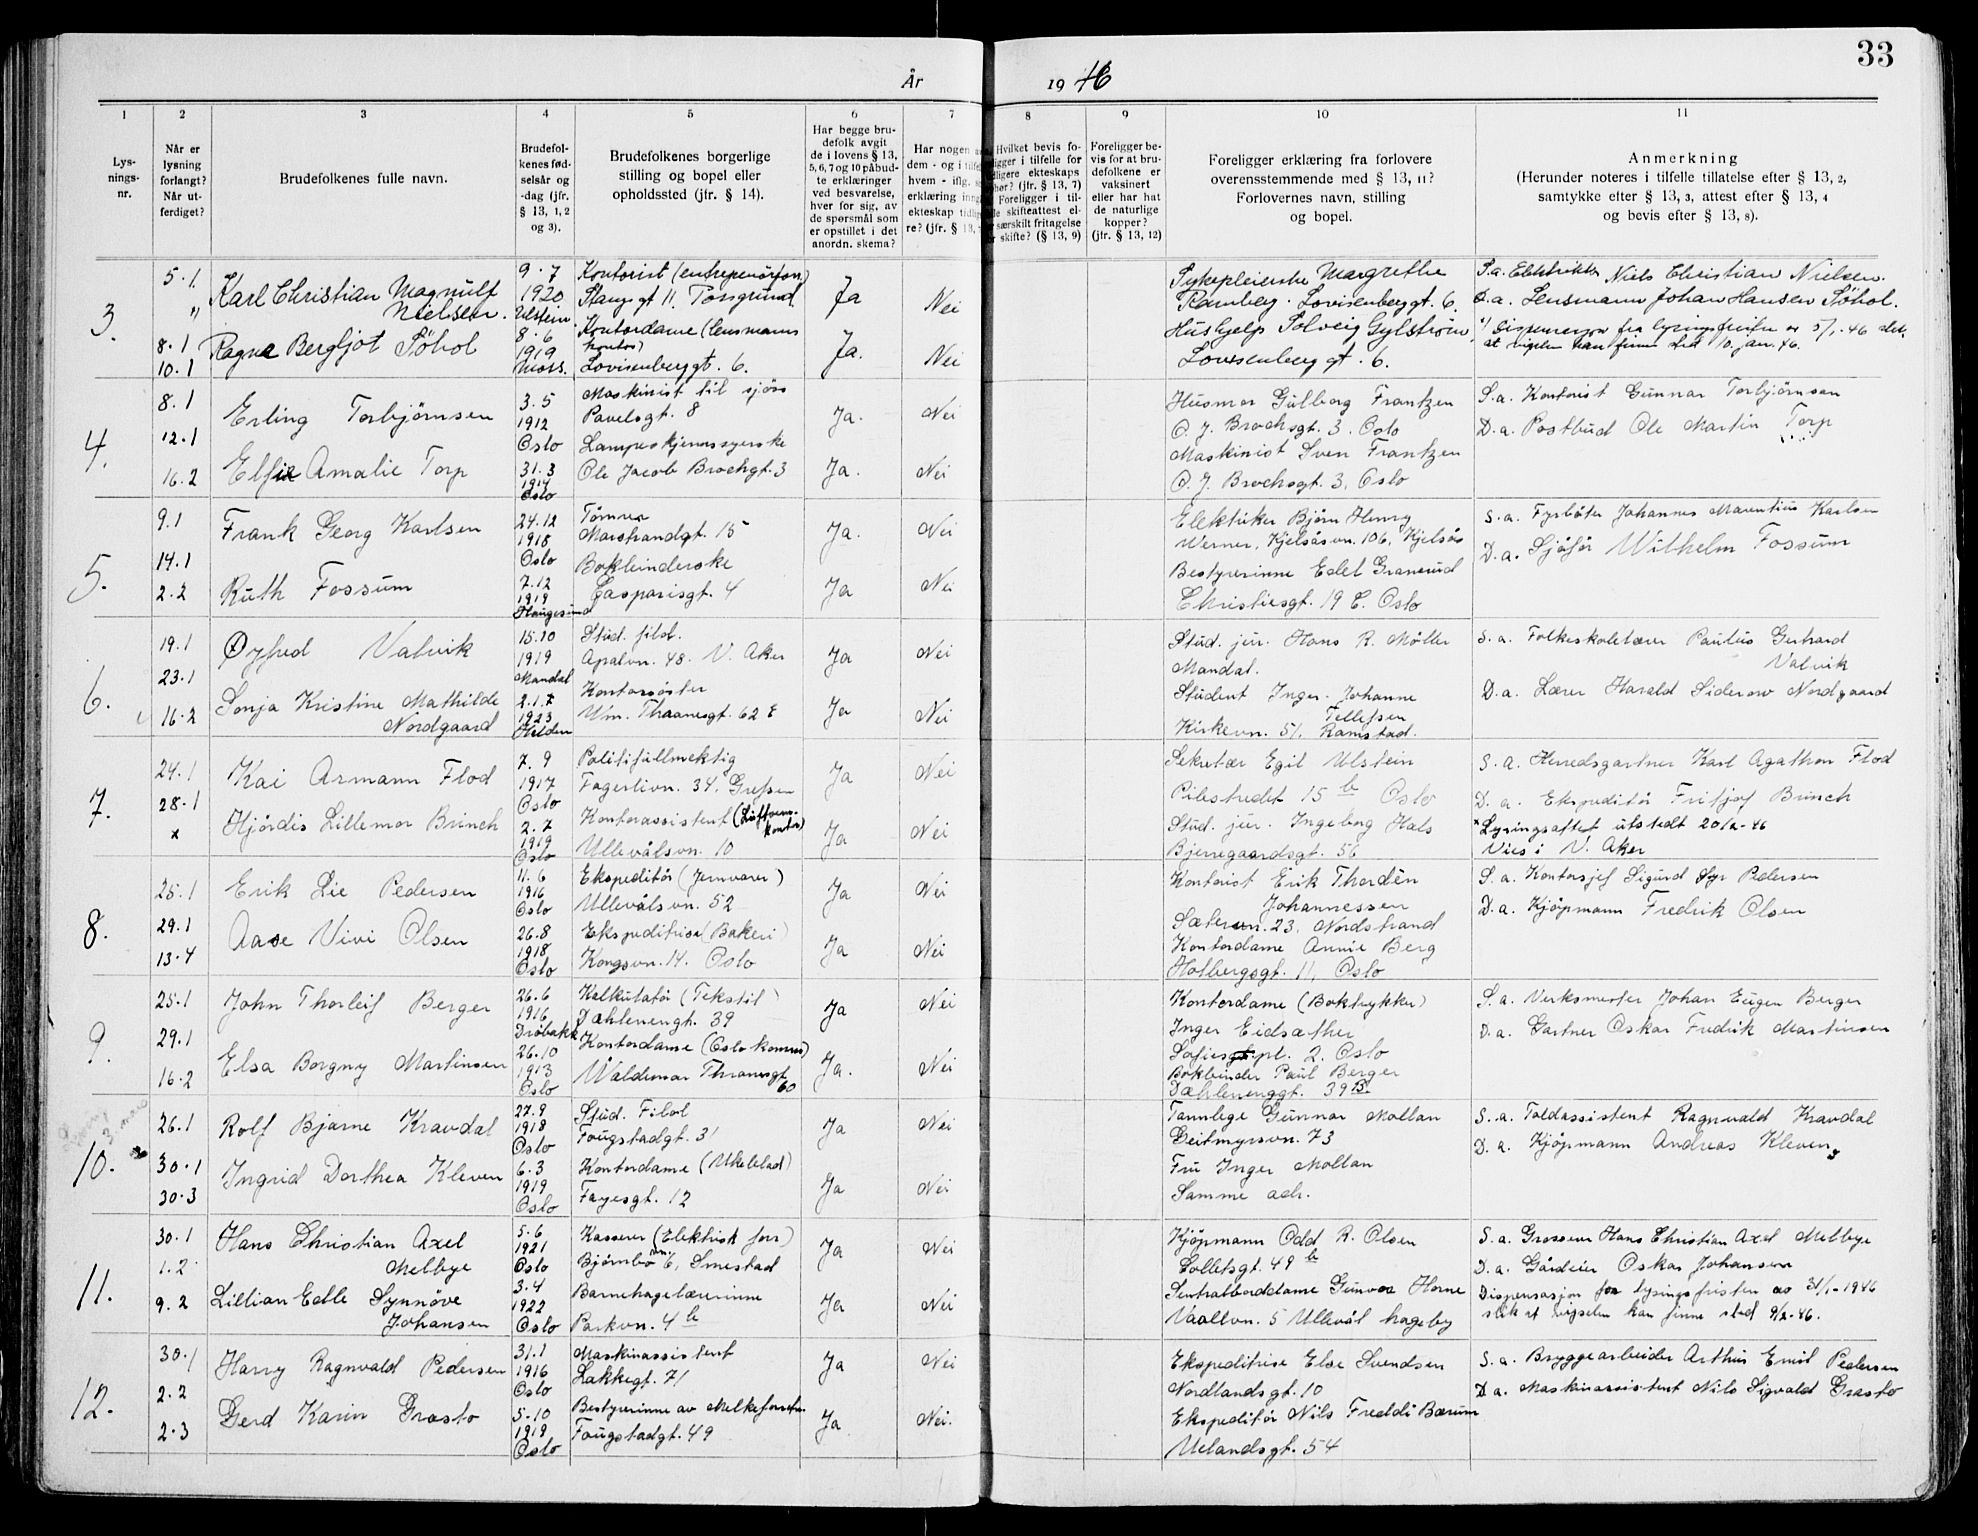 33
År 1946
1
2
3
4
5
6
7
8
9
10
11
Lys-
nings-
nr.
Når er
lysning
forlangt?
Når ut-
ferdiget?
Brudefolkenes fulle navn.
Brudefol-
kenes fød-
selsår og
-dag (jfr.
§ 13, 1, 2
og 3).
Brudefolkenes borgerlige
stilling og bopel eller
opholdssted (jfr. § 14).
Har begge bru-
defolk avgit
de i lovens § 13,
5, 6, 7 og 10 påbud-
te erklæringer
ved besvarelse,
hver for sig, av
de spørsmål som
er opstillet i det
anordn. skema?
Har nogen
dem - og i
hvem - iflg.
erklæring
ekteskap
re? (jfr. § 13,
Hvilket bevis fo-
ligger i tilfelle for
ekteskaps
(jfr. § 13, 7)
Foreligger i til-
skifteattest el-
særskilt fritagelse
skifte? (§ 13, 9)
Foreligger be-
vis for at bru-
defolkene er
vaksinert
eller har hat
de naturlige
kopper?
(jfr. § 13, 12)
Foreligger erklæring fra forlovere
overensstemmende med § 13, 11?
Forlovernes navn, stilling
og bopel.
Anmerkning
(Herunder noteres i tilfelle tillatelse efter § 13, 2,
samtykke efter § 13, 3, attest efter § 13, 4
og bevis efter § 13, 8).
3.
5.1
"
8.1
10.1
Karl Christian Magnulf
Nielsen.
Ragna Bergljot Söhol
9.7
1920
Ulstein
8.6
1919
Moss.
Kontorist (entreprenörforr.)
Storgt 11. Porsgrund
Kontordame (lensmanns
kontor)
Lovisenberggt. 6.
Ja
Ja.
Nei
Nei
Sykepleierske Margrethe
Ramberg. Lovisenberggt. 6.
Hushjelp Solveig Gylstrøm,
Lovisenberggt. 6.
S.a. Elektriker Niels Christian Nielsen.
D.a. Lensmann Johan Hansen Söhol.
Dispensasjon fra lysingsfristen av 5/1-46 slik
at vigslen kan finne sted 10. jan. 46.
4.
8.1
12.1
16.2
Erling Torbjørnsen
Elfie Amalie Torp
3.5
1912
Oslo
31.3
1914
Oslo
Maskinist til sjøss
Pavelsgt. 8
Lampeskjermsyerske
Ole Jacob Brochgt. 3
Ja.
Ja.
Nei
Nei
Husmor Gulborg Frantzen
O. J. Brochsgt. 3. Oslo
Maskinist Sven Frantzen
O. J. Brochsgt. 3. Oslo
S.a. Kontorist Gunnar Torbjørnsen
D.a. Postbud Ole Martin Torp
5.
9.1
14.1
2.2
Frank Georg Karlsen
Ruth Fossum
24.12
1918
Oslo
7.12
1919
Haugesund
Tømrer
Marstrandgt. 15
Bokbinderske
Casparisgt. 4
Ja.
Ja
Nei
Nei
Elektriker Bjørn Henry
Werner, Kjelsåsvn. 106, Kjelsås
Bestyrerinne Edel Granerud
Christiesgt. 19 C. Oslo
S.a. Fyrbøter Johannes Mauritius Karlsen
D.a. Sjåfør Wilhelm Fossum
6.
19.1
23.1
16.2
Øyfred Valvik
Sonja Kristine Mathilde
Nordgaard
15.10
1919
Mandal
2.1.7
1923
Halden
Stud. filol.
Apalvn. 48. V. Aker
Kontorsøster
Wm. Thranesgt. 62 E
Ja
Ja
Nei
Nei
Stud. jur. Hans R. Møller
Mandal.
Student Inger-Johanne
Tellefsen
Kirkevn. 51, Ramstad.
S.a. Folkeskolelærer Paulus Gerhard
Valvik
D.a. Lærer Harald Siderow Nordgaard
7.
24.1
28.1
x
Kai Armann Flod
Hjørdis Lillemor Brinch
7.9
1917
Oslo
2.7
1919
Oslo
Politifullmektig
Fagerlivn. 34. Grefsen
Kontorassistent (Luftverns-
kontor)
Ullevålsvn. 10
Ja
Ja
Nei
Nei
Sekretær Egil Ulstein
Pilestredet 15 b Oslo
Stud. jur. Ingeborg Hals
Bjerregaardsgt. 56
S.a. Herredsgartner Karl Agathon Flod
D.a. Ekspeditør Fritjof Brinch
x Lysingsattest utstedt 20/2-46
Vies i V. Aker
8.
25.1
29.1
13.4
Erik Lie Pedersen
Aase Vivi Olsen
11.6
1916
Oslo
26.8
1918
Oslo
Ekspeditør (Jernvarer)
Ullevålsvn. 52
Ekspeditrise (Bakeri)
Kongsvn. 14. Oslo
Ja
Ja
Nei
Nei
Kontorist Erik Thordén
Johannessen
Sætervn. 23. Nordstrand
Kontordame Annie Berg
Holbergsgt. 11, Oslo
S.a. Kontorsjef Sigurd Syr Pedersen
D.a. Kjøpmann Fredrik Olsen
9.
25.1
29.1
16.2
John Thorleif Berger
Elsa Borgny Martinsen
26.6
1916
Drøbakk
26.10
1913
Oslo
Kalkulatør (Tekstil)
Dæhlenengt. 39
Kontordame (Oslo komm)
Waldemar Thranesgt
60
Ja
Ja.
Nei
Nei
Kontordame (Boktrykker)
Inger Eidsæther
Sofiespl. 2. Oslo
Bokbinder Paul Berger
Dæhlenenggt. 39 B.
S.a. Verksmester Johan Eugen Berger
D.a. Gartner Oskar Fredrik Martinsen
10.
26.1
30.1
30.3
Rolf Bjarne Kravdal
Ingrid Dorthea Kleven
27.9
1918
Oslo
6.3
1919
Oslo
Stud. Filol
Fougstadgt. 31
Kontordame (Ukeblad)
Fayesgt. 12
Ja
Ja
Nei
Nei
Tannlege Gunnar Mollan
Geitmyrsvn. 73
Fru Inger Mollan
Samme adr.
S.a. Tollassistent Ragnvald Kravdal
D.a. Kjøpmann Andreas Kleven
11.
30.1
1.2
9.2
Hans Christian Axel
Melbye
Lillian Edle Synnöve
Johansen
5.6
1921
Oslo
3.4
1922
Oslo
Kasserer (Elektrisk forr)
Bjørnbovn. 6, Smestad
Barnehagelærerinne
Parkvn. 4 b
Ja
Ja
Nei
Nei
Kjøpmann Odd R. Olsen
Colletsgt. 49 b
Sentralborddame Gunvor Horne
Vaallvn. 5 Ullevål hageby
S.a. Grosserer Hans Christian Axel Melbye
D.a. Gårdeier Oskar Johansen
Dispensasjon for lysingsfristen av 31/1-1946
slik at vigselen kan finne sted 9/2-46.
12.
30.1
2.2
2.3
Harry Ragnvald Pedersen
Gerd Karin Grasto
31.1
1916
Oslo
5.10
1919
Oslo
Maskinassistent
Lakkegt. 71
Bestyrerinne av Melkeforretn.
Fougstadgt. 49
Ja
Ja.
Nei
Nei.
Ekspeditrise Else Svendsen
Nordlandsgt. 10
Ekspeditør Nils Freddi Bærum
Uelandsgt. 54
S.a. Bryggearbeider Arthur Emil Pedersen
D.a. Maskinassistent Nils Sigvald Grasto